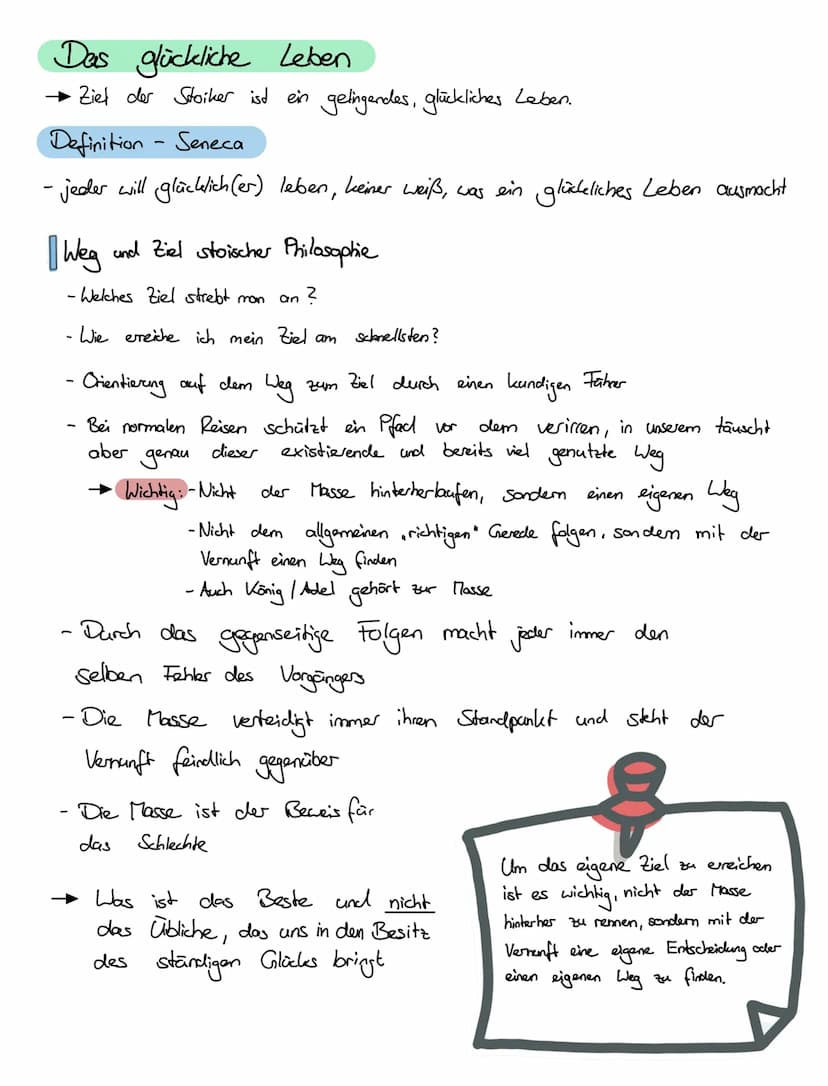 Das glückliche Leben
→ Ziel der Stoiker isd ein gelingendes, glückliches Leben.
Definition - Seneca
- jeder will glücklich(er) leben, keiner weiß, was ein glückliches Leben ausmacht
Weg und Ziel stoischer Philosophie
- Welches Ziel strebt man an?
- Wie erreiche ich mein Ziel am schnellsten?
- Orientierung auf dem Weg zum Ziel durch einen kundigen Führer
- Bei normalen Reisen schützt ein Pfad vor dem verirren, in unserem täuscht
aber genau dieser existierende und bereits viel genutzte Weg
→ Wichtig: - Nicht der Masse hinterherlaufen, sondern einen eigenen Weg
- Nicht dem allgemeinen „richtigen" Gerede folgen, sondern mit der
Vernunft einen Weg finden
- Auch König / Adel gehört zur Masse
- Durch das gegenseitige Folgen macht jeder immer den
selben Fehler des Vorgängers
- Die Masse verteidigt immer ihren Standpunkt und steht der
Vernunft feindlich gegenüber
- Die Masse ist der Beweis für
das Schlechte
→ Was ist das Beste und nicht
das Übliche, das uns in den Besitz
des ständigen Glücks bringt
Um das eigene Ziel zu erreichen
ist es wichtig, nicht der Masse
hinterher zu rennen, sondern mit der
Vernunft eine eigene Entscheidung oder
einen eigenen Weg zu finden.